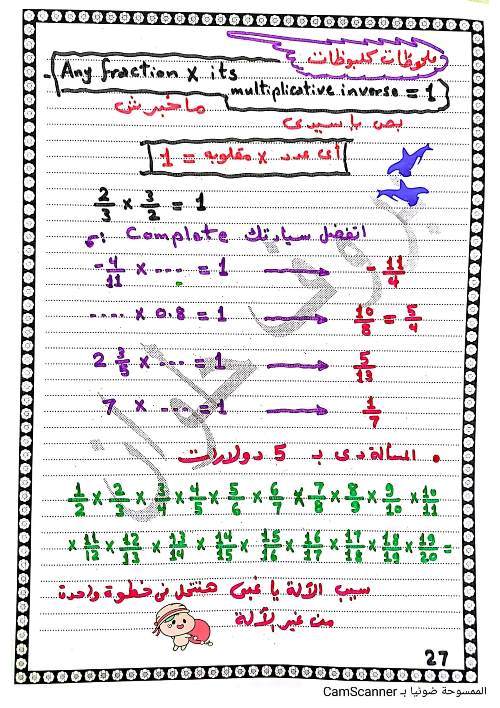 ملحوظات كلبوظات
- Any fraction x its
multiplicative inverse = 1
ماخبرش
بص يا سيدى
أى عدد x مقلوبه = 1
2/3 x 3/2 = 1
اتفضل سيادتك Complete :
-4/11 x ... = 1 → -11/4
..... x 0.8 = 1 → 10/8 = 5/4
2 3/5 x ... = 1 → 5/13
7 x ... = 1 → 1/7
• المسألة دى بـ 5 دولارات
1/2 x 2/3 x 3/4 x 4/5 x 5/6 x 6/7 x 7/8 x 8/9 x 9/10 x 10/11
x 11/12 x 12/13 x 13/14 x 14/15 x 15/16 x 16/17 x 17/18 x 18/19 x 19/20 =
سيب الألة يا غبى هنتحل فى خطوة واحدة
من غير الألة
27
الممسوحة ضوئيا بـ CamScanner